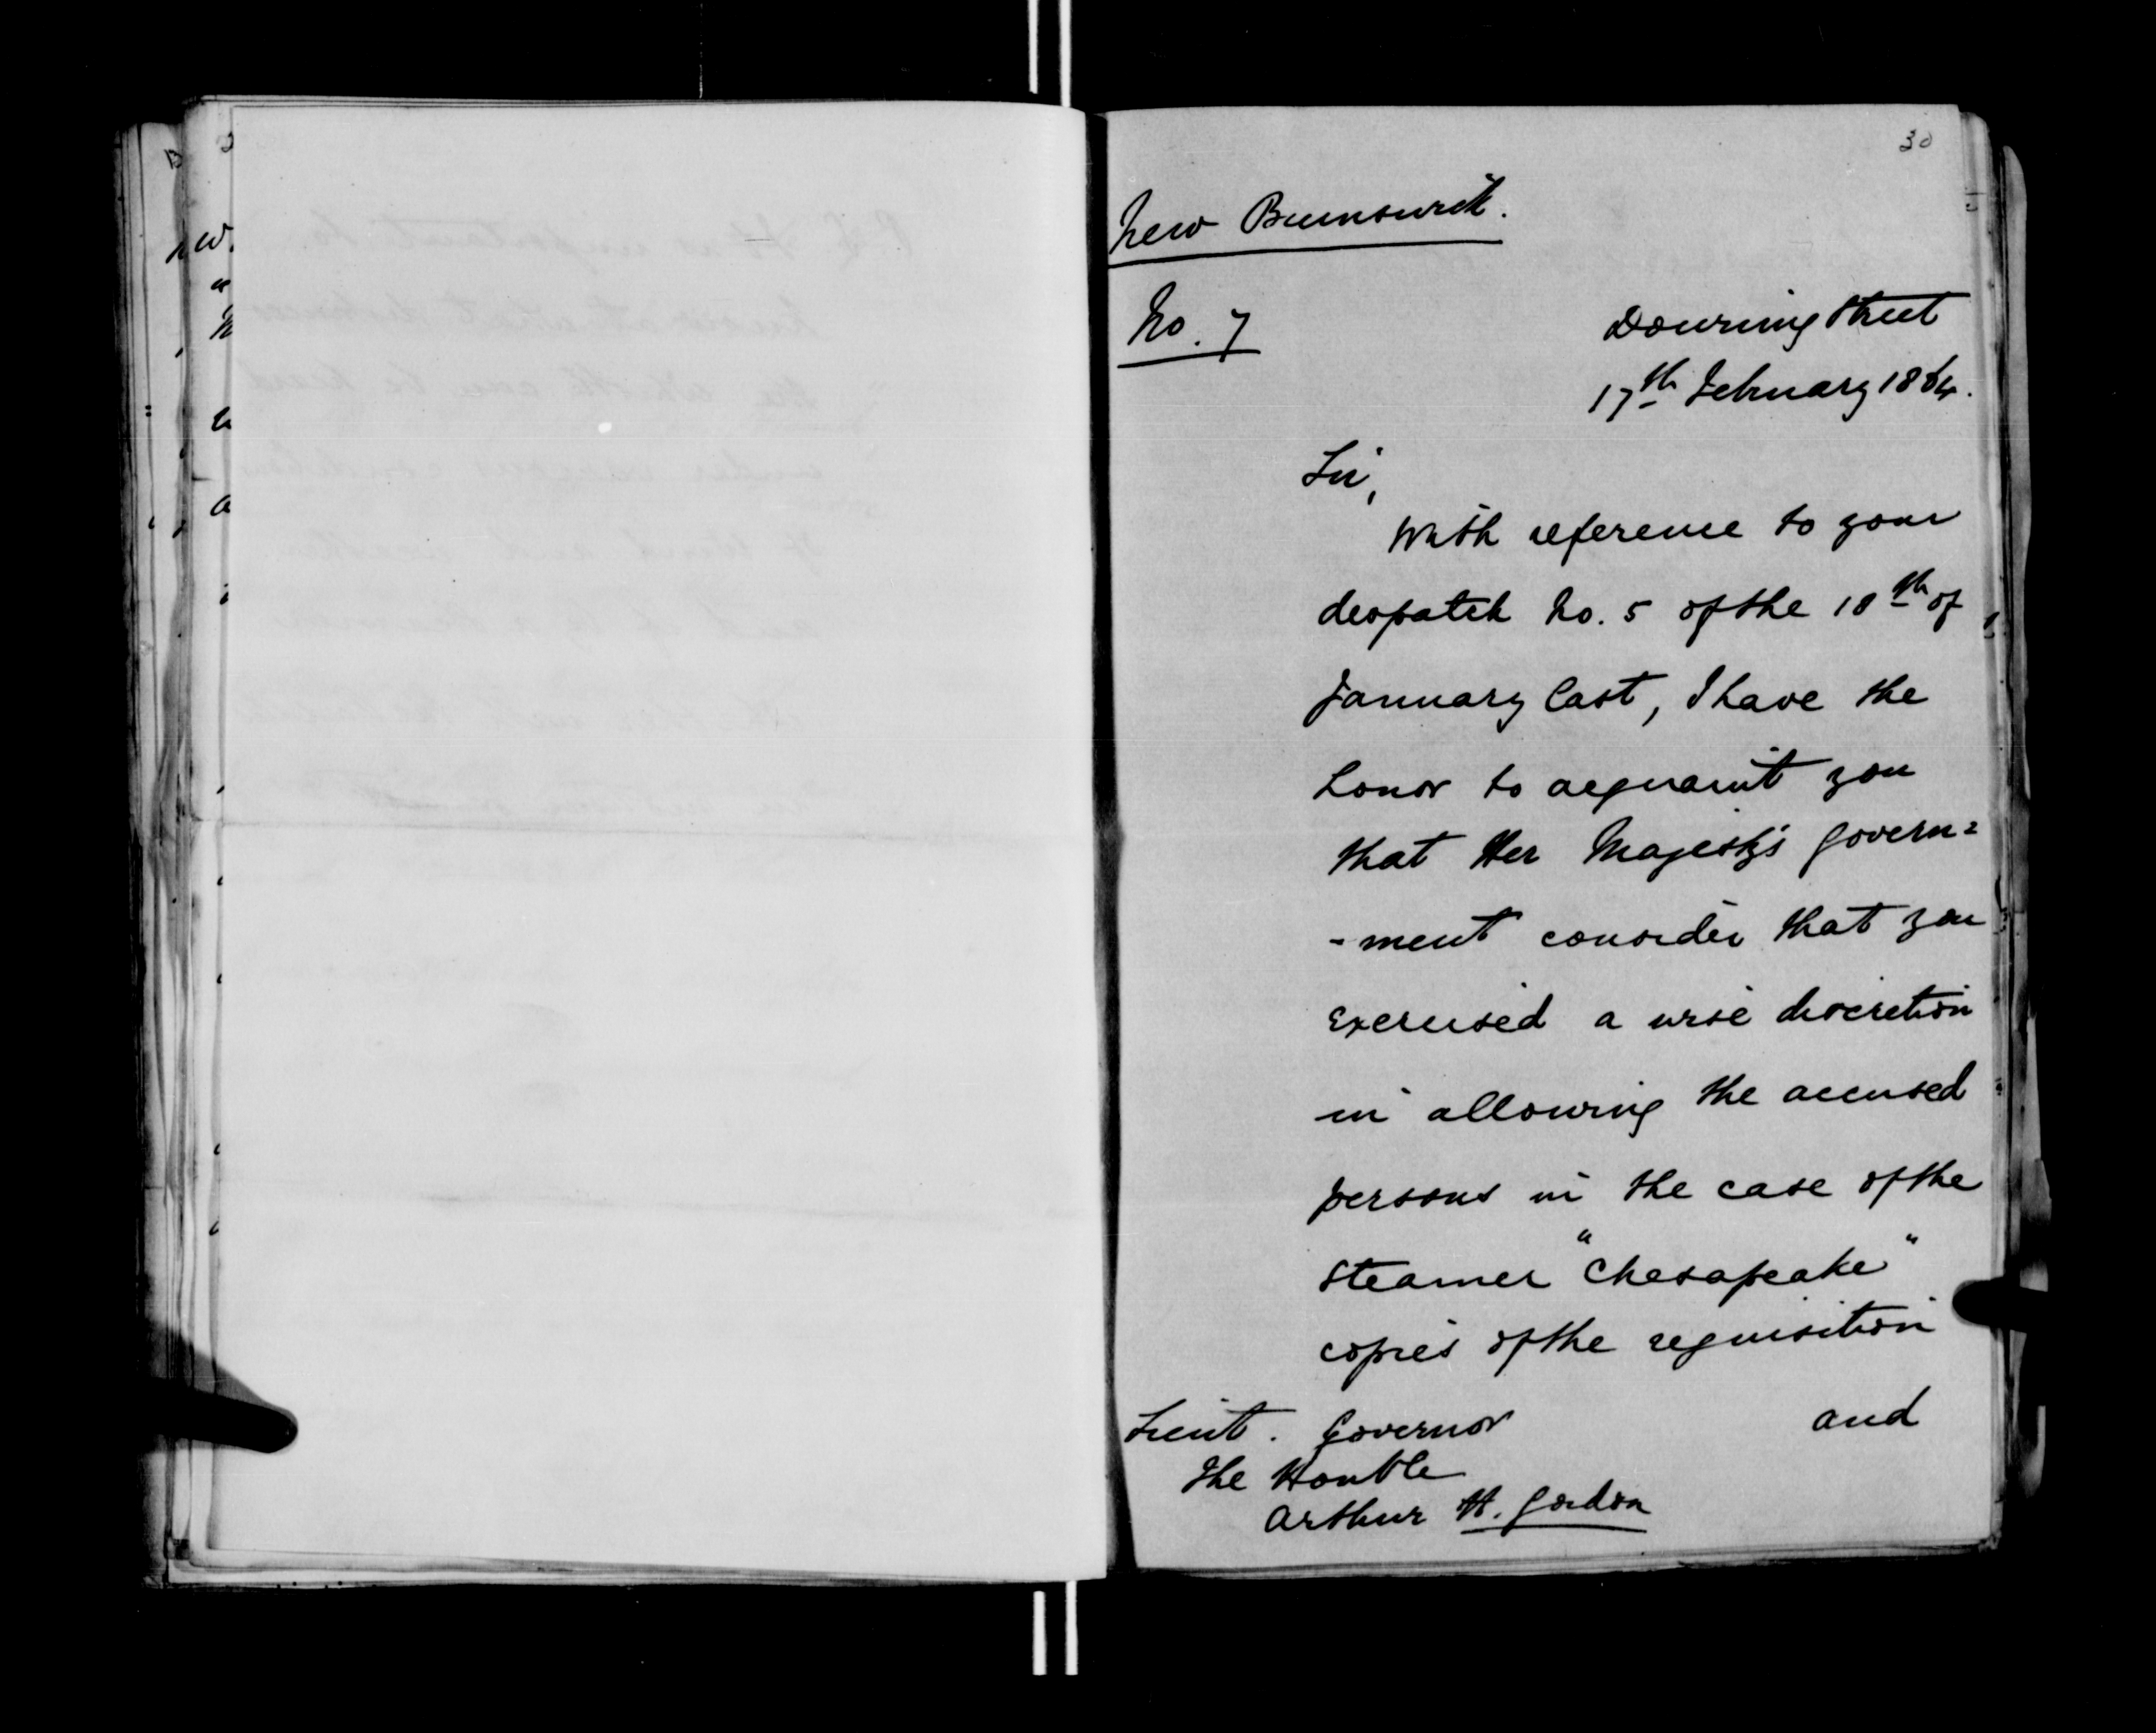 30
New Brunswick.
No. 7
Downing Street
17th February 1864.
Sir,
With reference to your
despatch No. 5 of the 18th of
January last, I have the
honor to acquaint you
that Her Majesty's Govern=
-ment consider that you
exercised a wise discretion
in allowing the accused
persons in the case of the
Steamer "Chesapeake"
copies of the requisition
and
Lieut. Governor
The Honble
Arthur H. Gordon